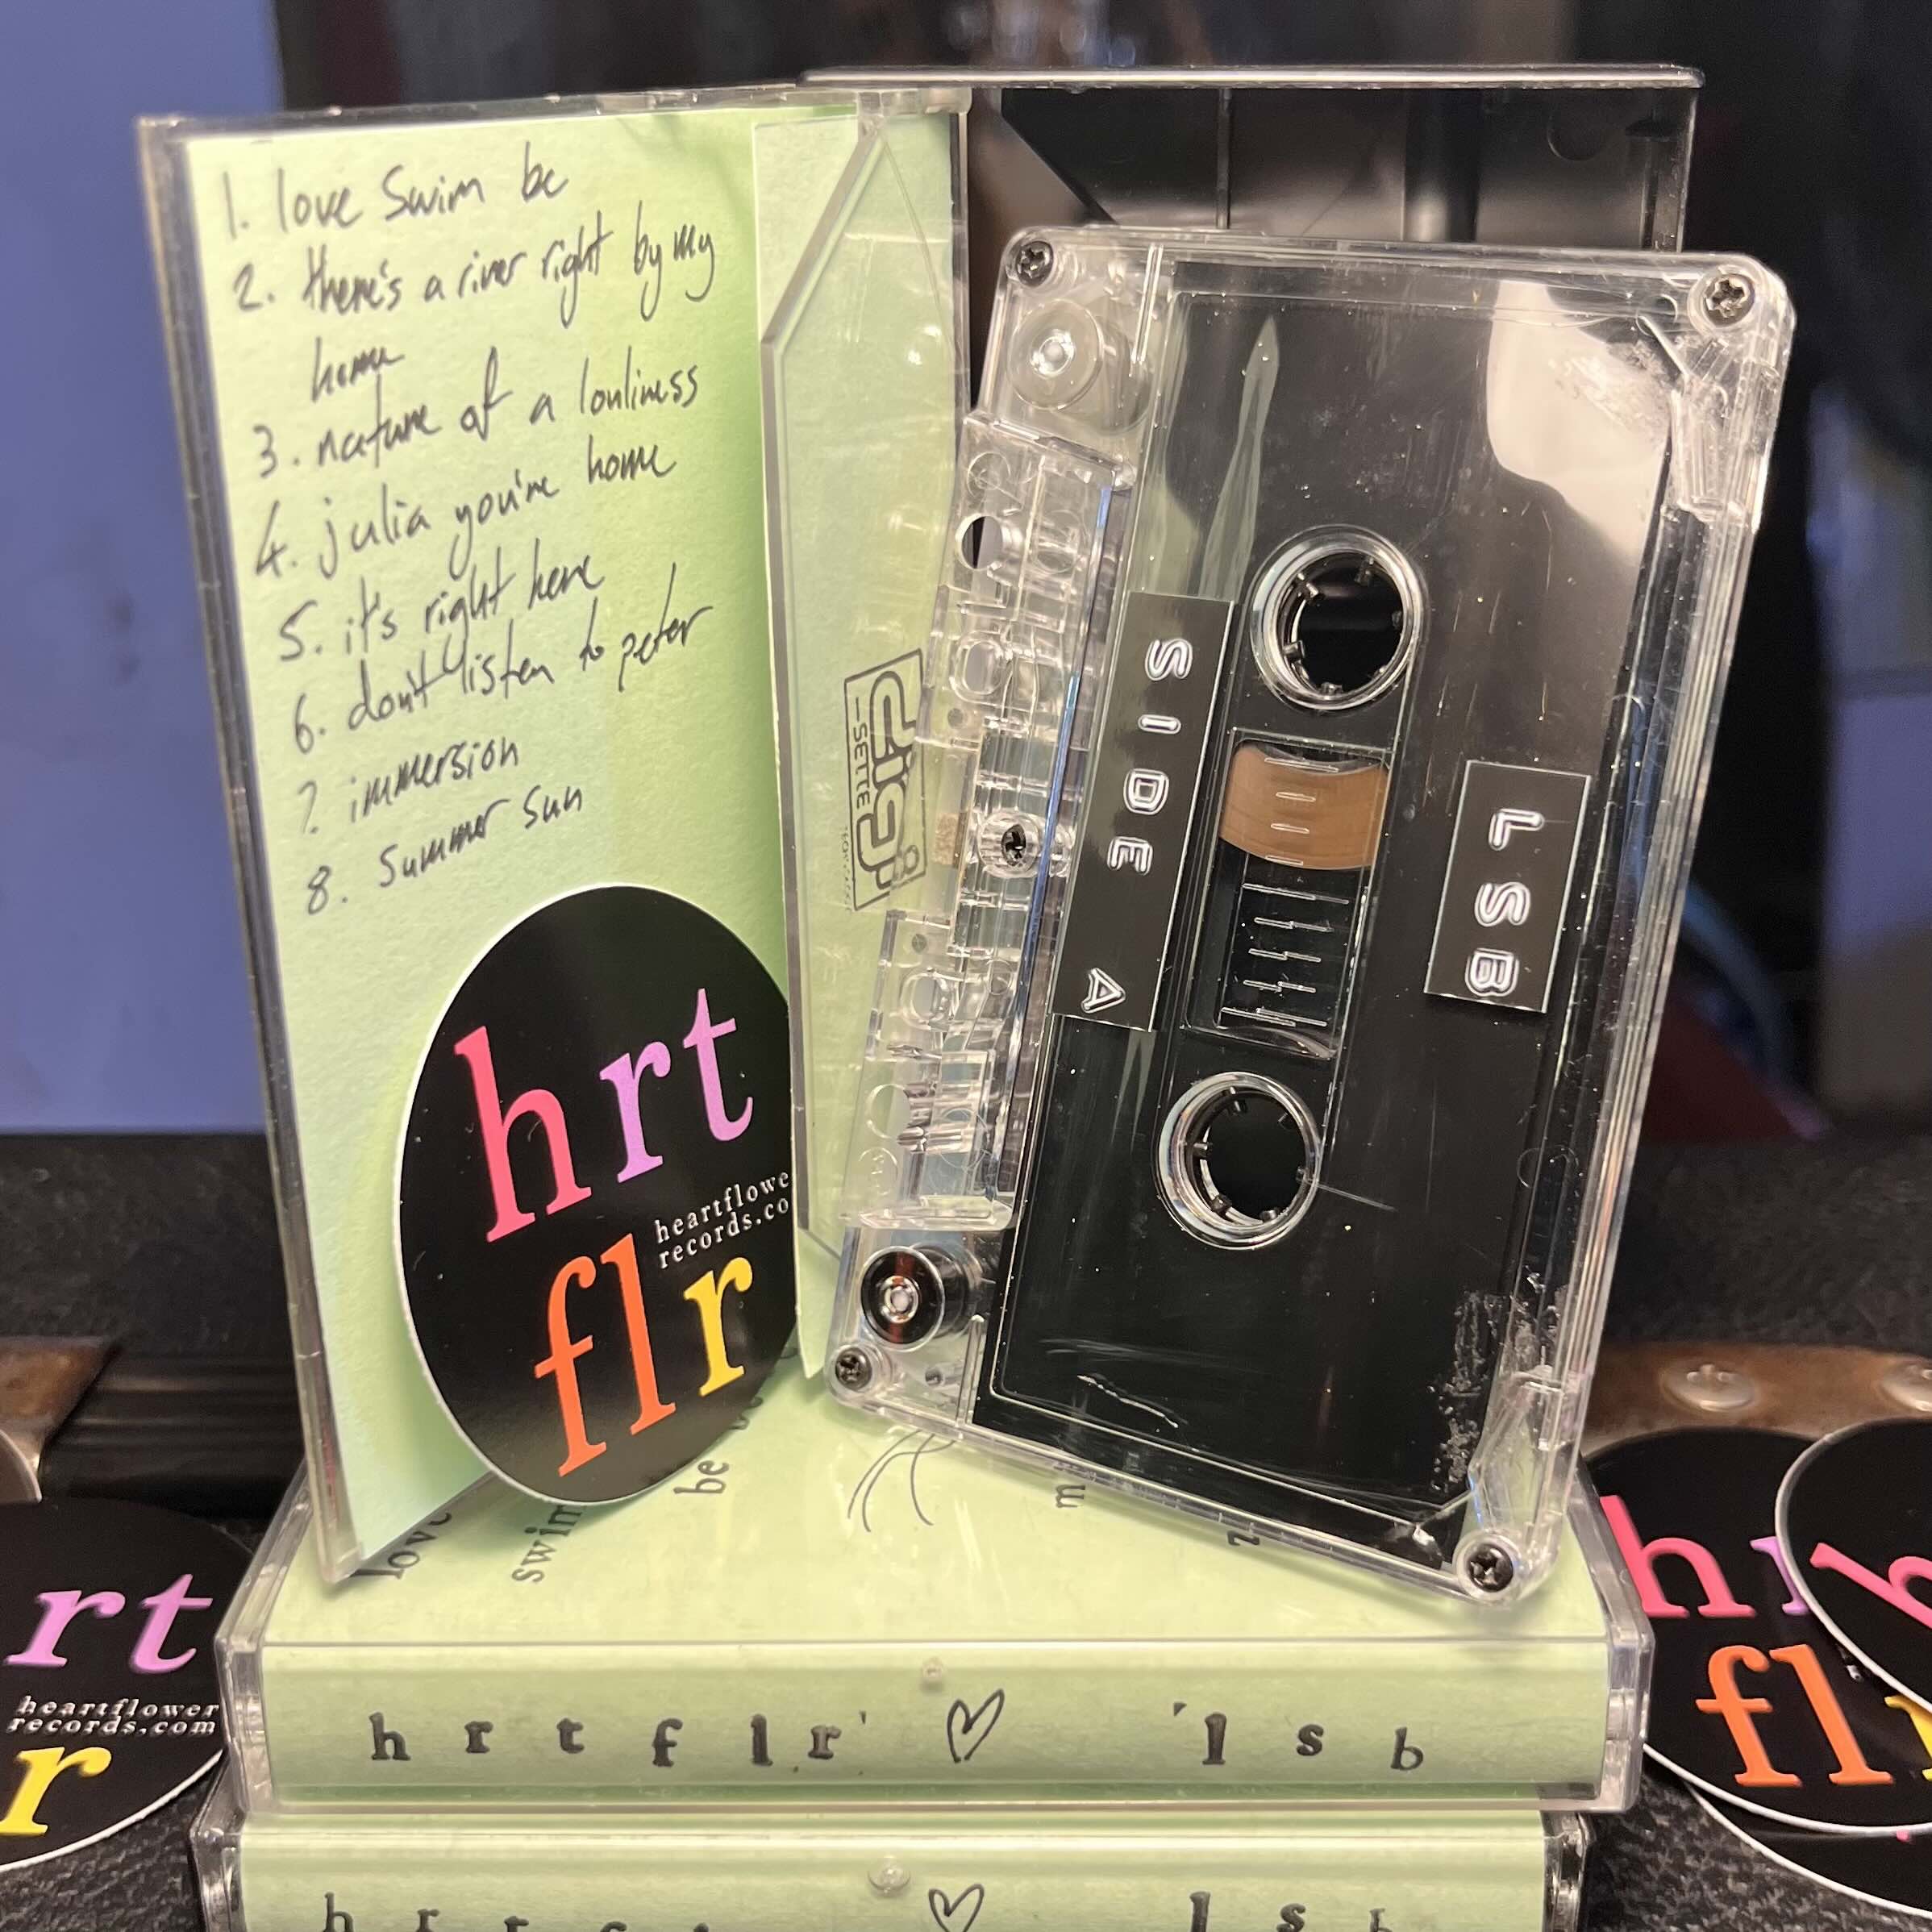 1. love swim be
2. there's a river right by my
home
3. nature of a lonliness
4. julia you're home
5. it's right here
6. don't listen to peter
7. immersion
8. summer sun
hrt
heartflowe
records.co
flr
digi
-SETTE
SIDE A
LSB
love
swim
be
m
z
hrtflr' 'lsb
rt
heartflower
records.com
r
h
fl
h
lsb